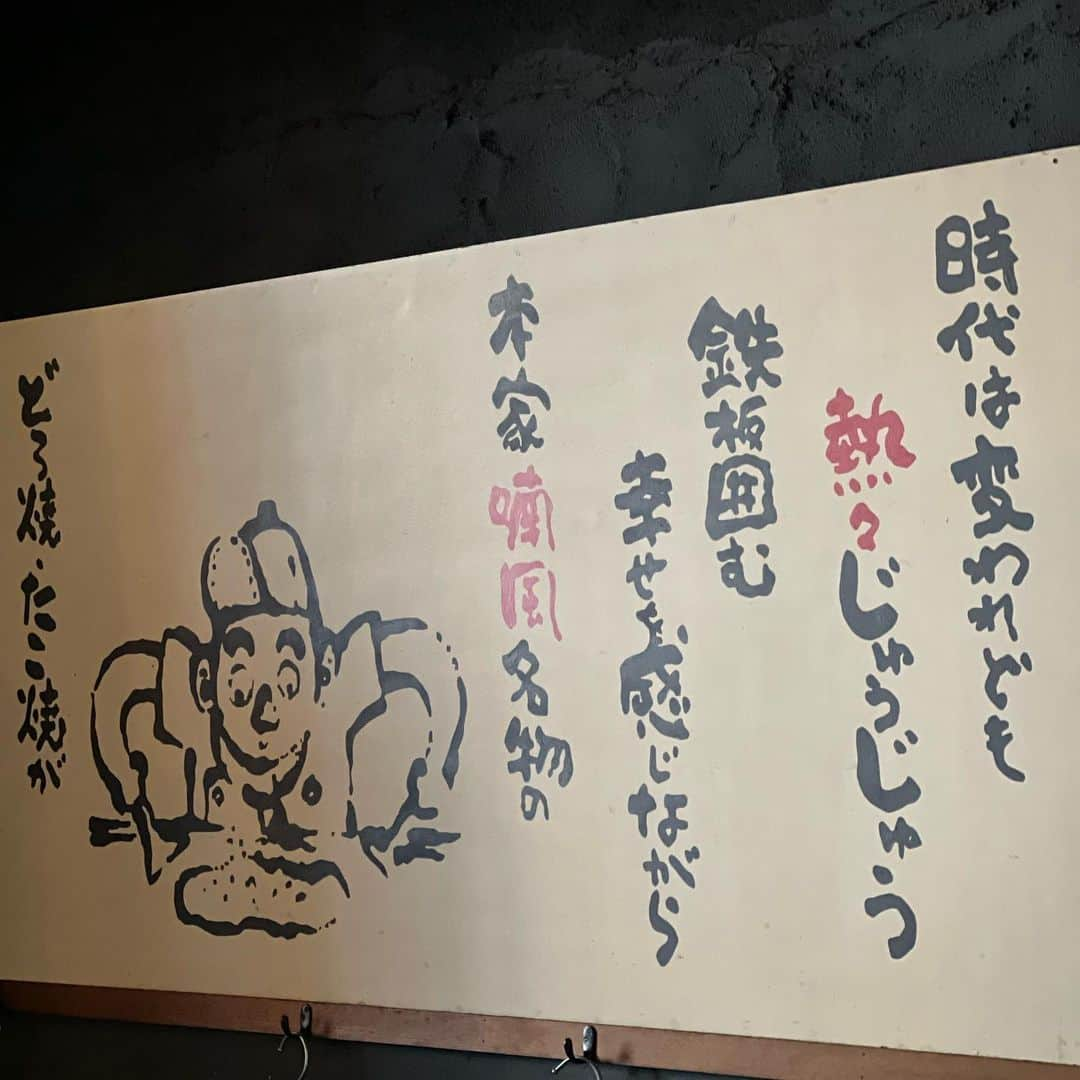 時代は変われども
熱々じゅうじゅう
鉄板囲む
幸せを感じながら
本家喃風名物の
どろ焼・たこ焼が